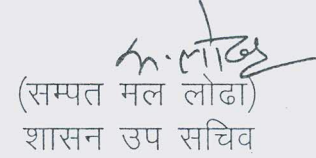 (सम्पत मल लोढा)
शासन उप सचिव